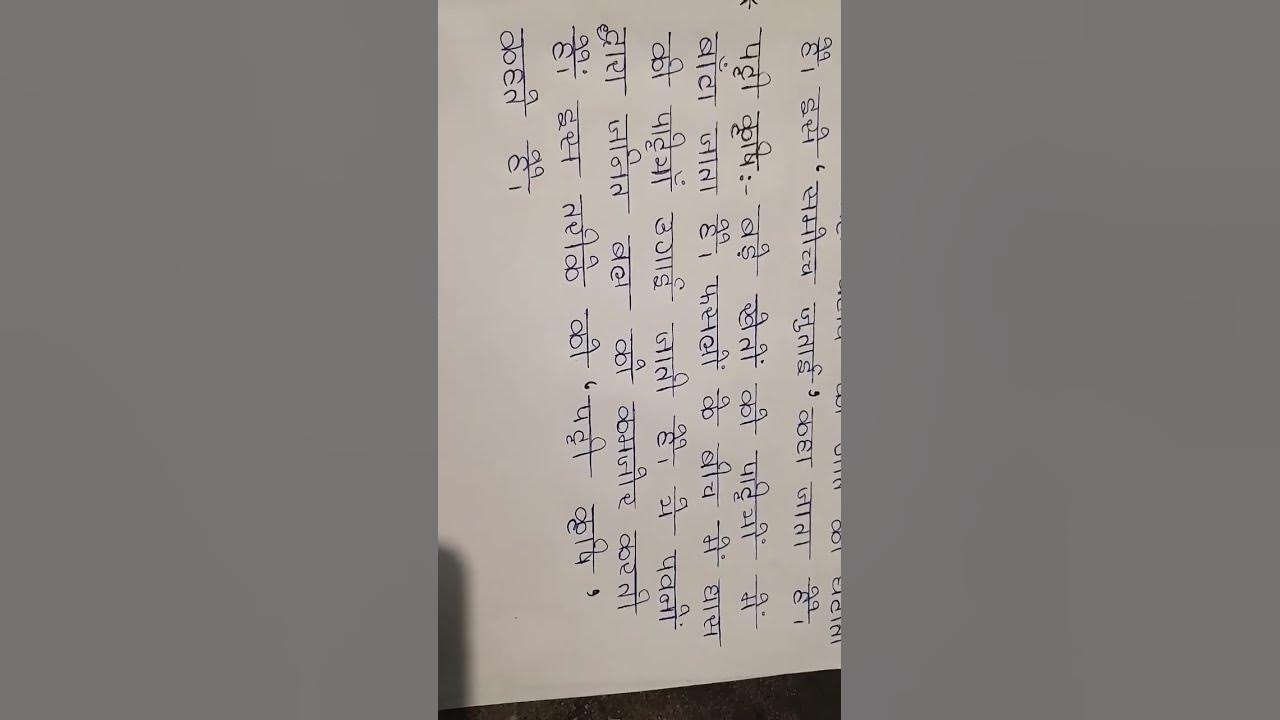 को घटाता
है। इसे ‘समोच्च जुताई’ कहा जाता है।
* पट्टी कृषि:- बड़े खेतों को पट्टियों में
बाँटा जाता है। फसलों के बीच में घास
की पट्टियाँ उगाई जाती है। ये पवनों
द्वारा जनित बल को कमजोर करती
हैं। इस तरीके को ‘पट्टी कृषि’
कहते हैं।